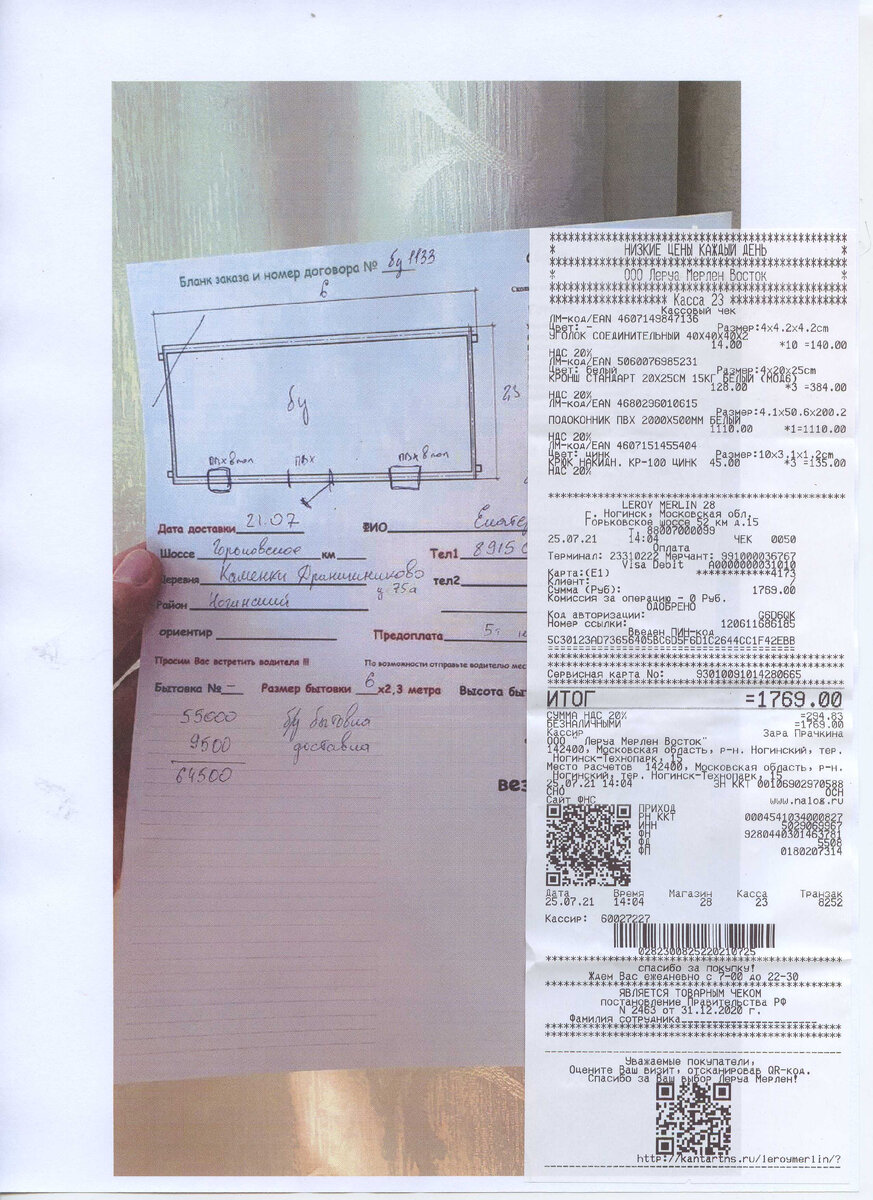 Бланк заказа и номер договора № бд 1133
6
2,3
бу
ПВХ
Дата доставки 21.07
ФИО
Шоссе Горьковское км
Тел1 8915
Деревня
Каменки Дранишниково
у. 75а
тел2
Район Ногинский
ориентир
Предоплата 5т
Просим Вас встретить водителя !!!
По возможности отправьте водителю
Бытовка № –
Размер бытовки 6 х2,3 метра
Высота
55000 б/у бытовка
9500 доставка
64500
ВЕЗ
***********************************************
* НИЗКИЕ ЦЕНЫ КАЖДЫЙ ДЕНЬ *
***********************************************
* ООО Леруа Мерлен Восток *
***********************************************
******************* Касса 23 *******************
Кассовый чек
ЛМ-код/EAN 4607149847136
Цвет: – Размер:4x4.2x4.2cm
УГОЛОК СОЕДИНИТЕЛЬНЫЙ 40X40X40X2
14.00 *10 =140.00
НДС 20%
ЛМ-код/EAN 5060076985231
Цвет: Белый Размер:4x20x25cm
КРОНШ СТАНДАРТ 20X25СМ 15КГ БЕЛЫЙ (МОД6)
128.00 *3 =384.00
НДС 20%
ЛМ-код/EAN 4680296010615
Размер:4.1x50.6x200.2
ПОДОКОННИК ПВХ 2000X500ММ БЕЛЫЙ
1110.00 *1=1110.00
НДС 20%
ЛМ-код/EAN 4607151455404
Цвет: цинк Размер:10x3.1x1.2cm
КРЮК НАКИДН. КР-100 ЦИНК 45.00 *3 =135.00
НДС 20%
***********************************************
LEROY MERLIN 28
г. Ногинск, Московская обл.
Горьковское шоссе 52 км д.15
Т. 88007000099
25.07.21 14:04 ЧЕК 0050
Оплата
Терминал: 23310222 Мерчант: 991000036767
Visa Debit A0000000031010
Карта:(E1) ************4173
Клиент:
Сумма (Руб): 1769.00
Комиссия за операцию - 0 Руб.
ОДОБРЕНО
Код авторизации: G6D6QK
Номер ссылки: 120611686185
Введен ПИН-код
5C30123AD73656405BC6D5F6D1C2644CC1F42EBB
===============================================
***********************************************
***********************************************
Сервисная карта No: 93010091014280665
ИТОГ =1769.00
СУММА НДС 20% =294.83
БЕЗНАЛИЧНЫМИ =1769.00
Кассир Зара Прачкина
ООО " Леруа Мерлен Восток"
142400, Московская область, р-н. Ногинский, тер.
Ногинск-Технопарк, 15
Место расчетов 142400, Московская область, р-н.
Ногинский, тер. Ногинск-Технопарк, 15
25.07.21 14:04 ЗН ККТ 00106902970588
СНО ОСН
Сайт ФНС www.nalog.ru
ПРИХОД
РН ККТ 0004541034000827
ИНН 5029069967
ФН 9280440301463781
ФД 5508
ФП 0180207314
Дата Время Магазин Касса Транзак
25.07.21 14:04 28 23 8252
Кассир: 60027227
0282300825220210725
***********************************************
спасибо за покупку!
Ждем Вас ежедневно с 7-00 до 22-30
***********************************************
ЯВЛЯЕТСЯ ТОВАРНЫМ ЧЕКОМ
постановление Правительства РФ
N 2463 от 31.12.2020 г.
Фамилия сотрудника
***********************************************
***********************************************
Уважаемые покупатели,
Оцените Ваш визит, отсканировав QR-код.
Спасибо за Ваш выбор Леруа Мерлен!
http://kantartns.ru/leroymerlin/?